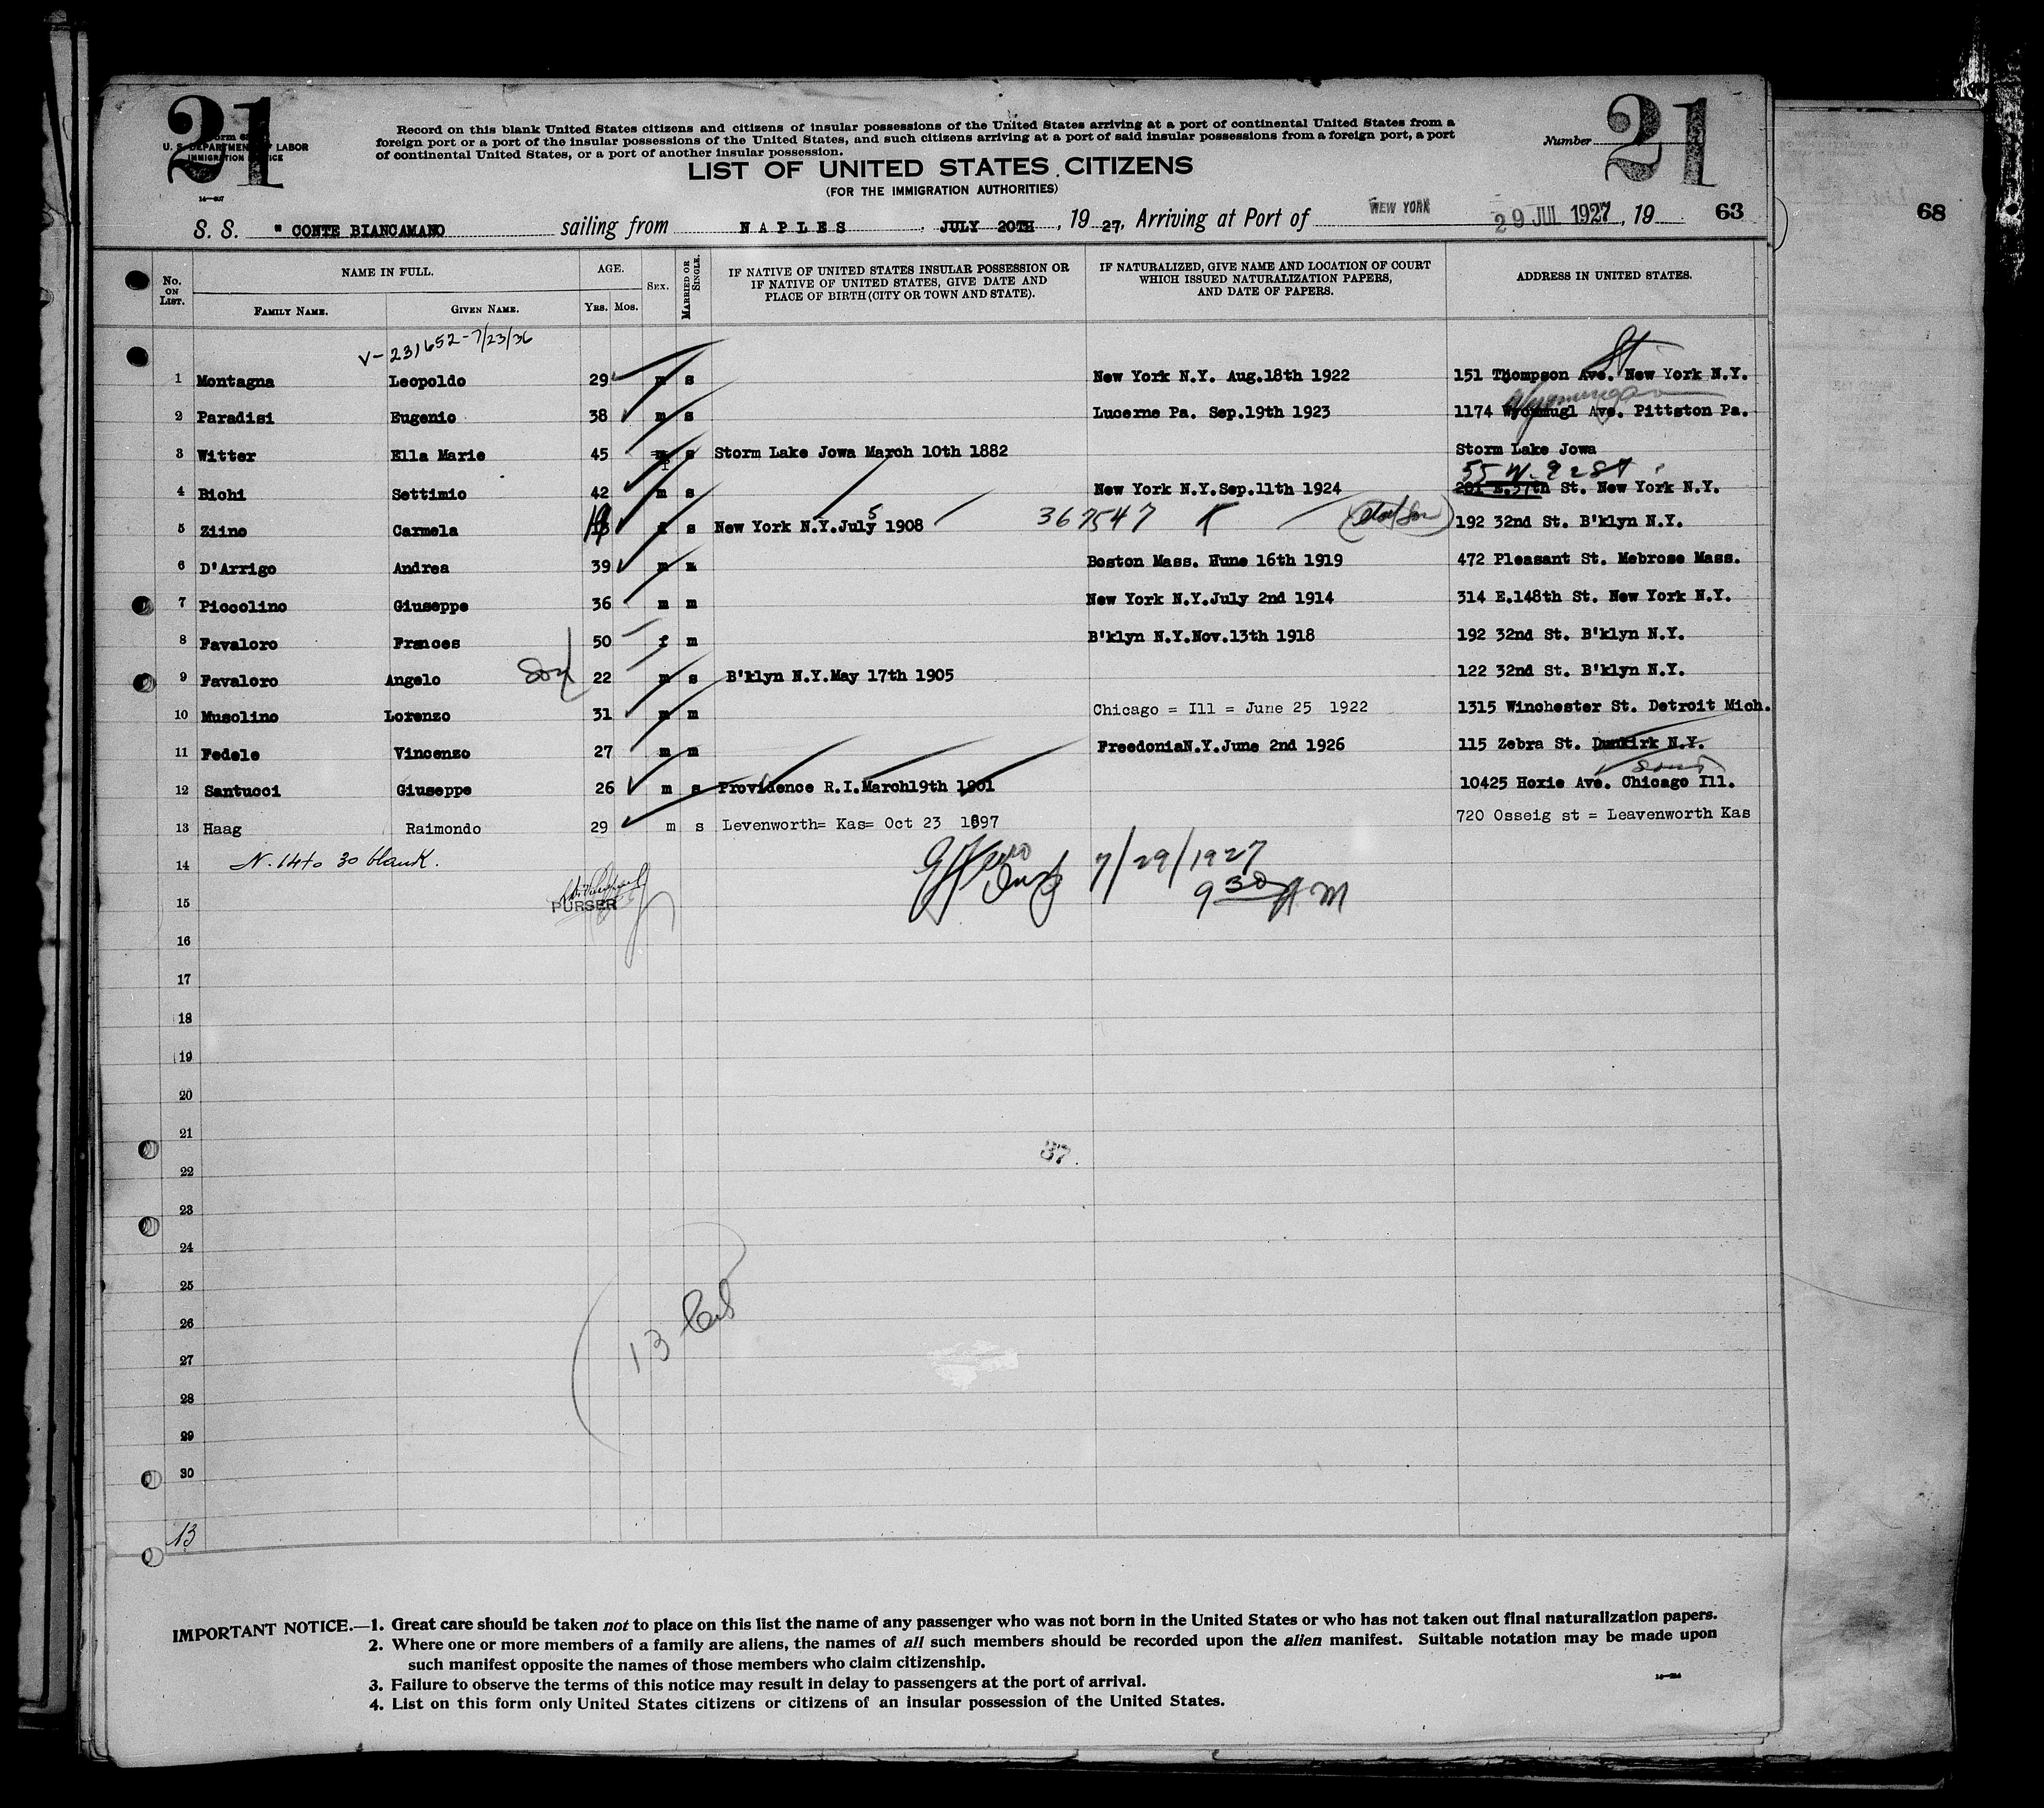 21
21
Form 63
U. S. DEPARTMENT OF LABOR
IMMIGRATION SERVICE
14—637
Record on this blank United States citizens and citizens of insular possessions of the United States arriving at a port of continental United States from a
foreign port or a port of the insular possessions of the United States, and such citizens arriving at a port of said insular possessions from a foreign port, a port
of continental United States, or a port of another insular possession.
Number
LIST OF UNITED STATES CITIZENS
(FOR THE IMMIGRATION AUTHORITIES)
S. S. " CONTE BIANCAMANO sailing from NAPLES . JULY 20TH , 19 27, Arriving at Port of NEW YORK 29 JUL 1927, 19 63
68
No. ON LIST. NAME IN FULL. AGE. SEX. MARRIED OR SINGLE. IF NATIVE OF UNITED STATES INSULAR POSSESSION OR IF NATIVE OF UNITED STATES, GIVE DATE AND PLACE OF BIRTH (CITY OR TOWN AND STATE). IF NATURALIZED, GIVE NAME AND LOCATION OF COURT WHICH ISSUED NATURALIZATION PAPERS, AND DATE OF PAPERS. ADDRESS IN UNITED STATES.
FAMILY NAME. GIVEN NAME. YRS. MOS.
V-231652-7/23/36
St
1 Montagna Leopoldo 29 m s New York N.Y. Aug.18th 1922 151 Thompson Ave. New York N.Y.
2 Paradisi Eugenio 38 m s Lucerne Pa. Sep.19th 1923 1174 Wyomugl Ave. Pittston Pa.
3 Witter Ella Marie 45 f s Storm Lake Jowa March 10th 1882 Storm Lake Jowa
55 W. 92 St
4 Bichi Settimio 42 m s New York N.Y.Sep.11th 1924 201 E.37th St. New York N.Y.
5 Ziino Carmela f s New York N.Y.July 5 1908 367547 K 192 32nd St. B'klyn N.Y.
6 D'Arrigo Andrea 39 m m Boston Mass. Hune 16th 1919 472 Pleasant St. Mebrose Mass.
7 Piccolino Giuseppe 36 m m New York N.Y.July 2nd 1914 314 E.148th St. New York N.Y.
8 Favaloro Frances 50 f m B'klyn N.Y.Nov.13th 1918 192 32nd St. B'klyn N.Y.
9 Favaloro Angelo son 22 m s B'klyn N.Y.May 17th 1905 122 32nd St. B'klyn N.Y.
10 Musolino Lorenzo 31 m m Chicago = Ill = June 25 1922 1315 Winchester St. Detroit Mich.
11 Fedele Vincenzo 27 m m FreedoniaN.Y.June 2nd 1926 115 Zebra St. Dunkirk N.Y.
12 Santucci Giuseppe 26 m s Providence R.I.March19th 1901 10425 Hoxie Ave. Chicago Ill.
13 Haag Raimondo 29 m s Levenworth= Kas= Oct 23 1897 720 Osseig st = Leavenworth Kas
14 N. 14 to 30 blank.
7/29/1927
9 30 A M
15 PURSER
16
17
18
19
20
21
37
22
23
24
25
26
13
27
28
29
30
13
IMPORTANT NOTICE.—1. Great care should be taken not to place on this list the name of any passenger who was not born in the United States or who has not taken out final naturalization papers.
2. Where one or more members of a family are aliens, the names of all such members should be recorded upon the alien manifest. Suitable notation may be made upon
such manifest opposite the names of those members who claim citizenship.
3. Failure to observe the terms of this notice may result in delay to passengers at the port of arrival.
4. List on this form only United States citizens or citizens of an insular possession of the United States.